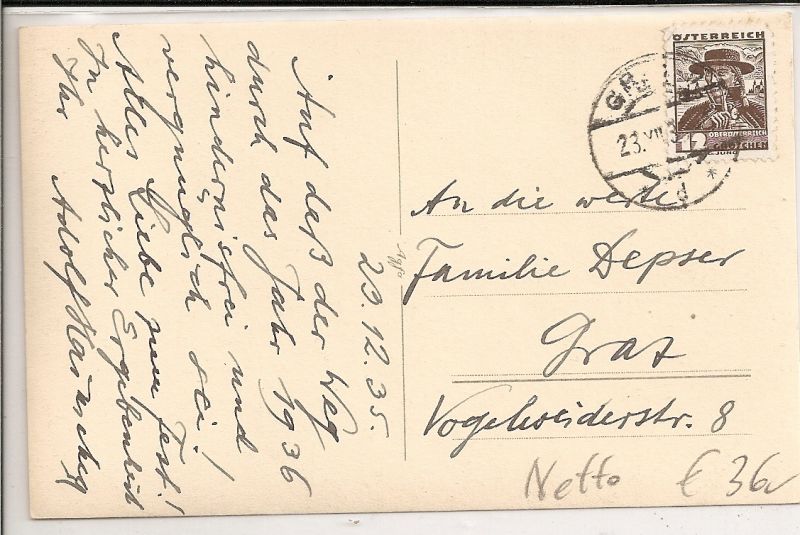 23.12.35.
Auf daß der Weg
durch das Jahr 1936
hindernisfrei und
vergnüglich sei!
Alles Liebe zum Fest!
In herzlicher Ergebenheit
Ihr Adolf
An die werte
Familie Depser
Graz
Vogelweiderstr. 8
ÖSTERREICH
12
OBERÖSTERREICH
GROSCHEN
GR
23. VII
d
Netto € 36